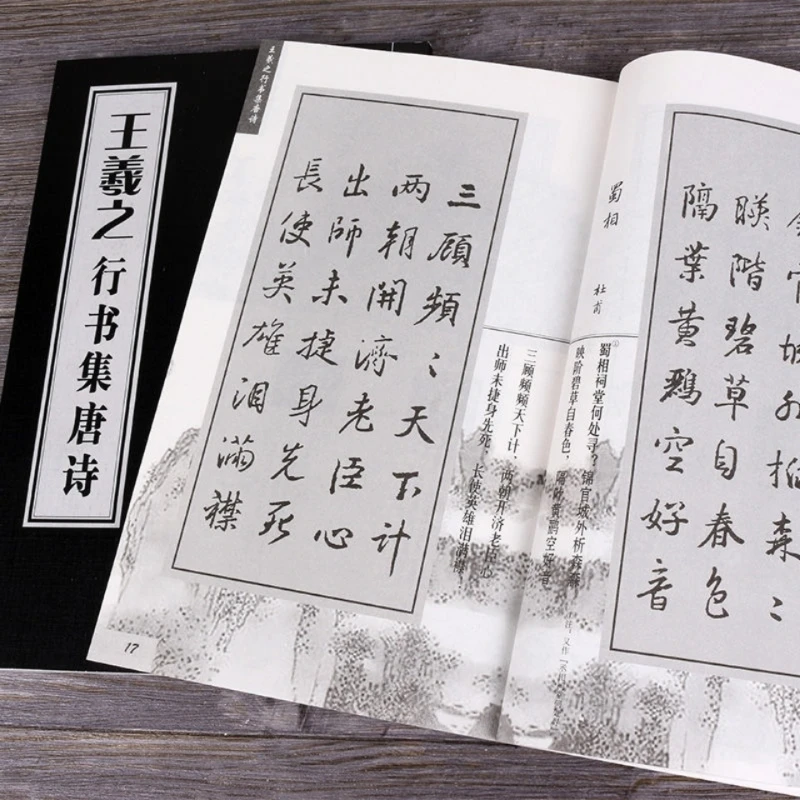 王羲之行书集唐诗
王羲之行书集唐诗
三顧頻〻天下計
两朝開濟老臣心
出師未捷身先死
長使英雄泪滿襟
三顾频频天下计，两朝开济老臣心
出师未捷身先死，长使英雄泪满襟
17
蜀相
杜甫
城外柏森〻
暎階碧草自春色
隔葉黄鸝空好音
蜀相祠堂何处寻？锦官城外柏森森
映阶碧草自春色，隔叶黄鹂空好音